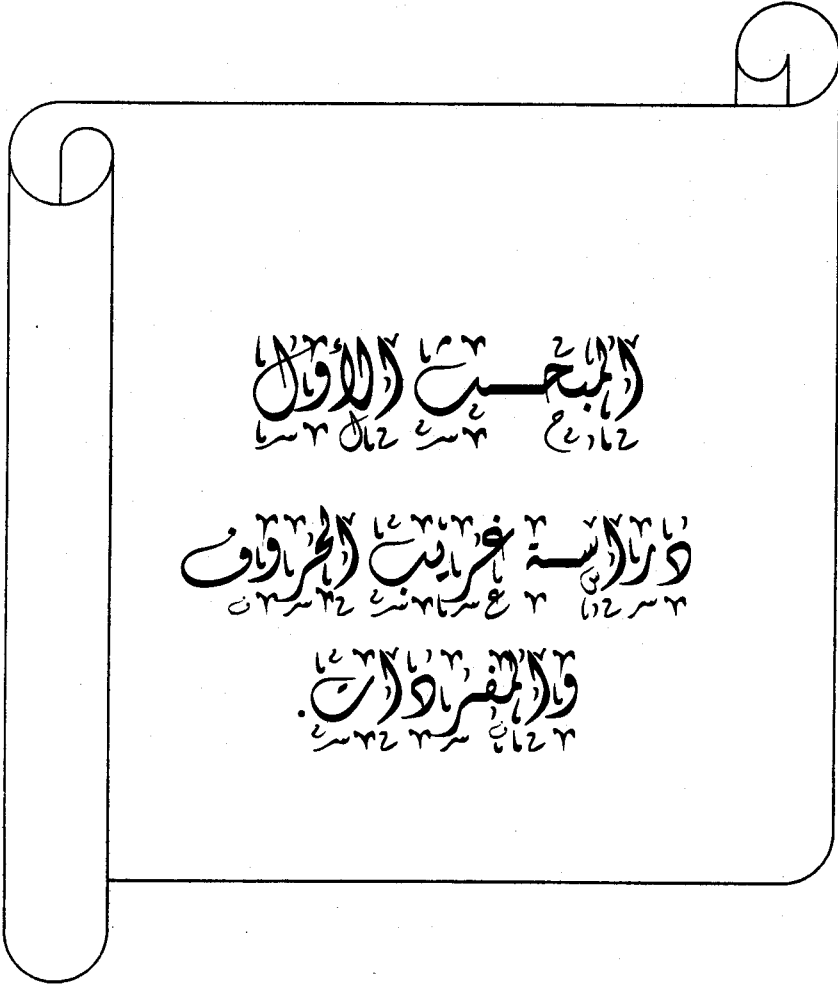 المبحث الأول
دراسة غريب الحروف
والمفردات.